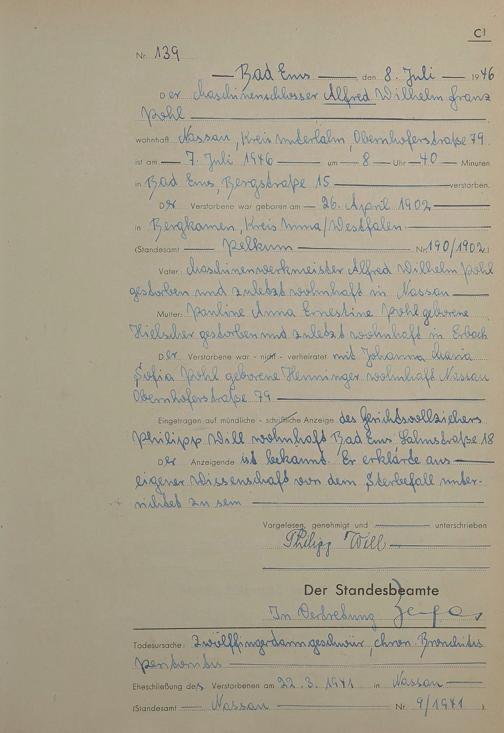 C1
Nr. 139
Bad Ems den 8. Juli 1946
Der Maschinenschlosser Alfred Wilhelm Franz
Pohl
wohnhaft Nassau, Kreis Unterlahn, Obernhoferstraße 79
ist am 7. Juli 1946 um 8 Uhr 40 Minuten
in Bad Ems, Bergstraße 15 verstorben.
Der Verstorbene war geboren am 26. April 1902
in Bergkamen, Kreis Unna/Westfalen
(Standesamt Pelkum Nr. 190/1902)
Vater: Maschinenwerkmeister Alfred Wilhelm Pohl
gestorben und zuletzt wohnhaft in Nassau
Mutter: Pauline Anna Ernestine Pohl geborene
Hielscher gestorben und zuletzt wohnhaft in Erbach
Der Verstorbene war - nicht - verheiratet mit Johanna Maria
Sofia Pohl geborene Henninger wohnhaft Nassau
Obernhoferstraße 79
Eingetragen auf mündliche - schriftliche Anzeige des Gerichtsvollziehers
Philipp Will wohnhaft Bad Ems. Lahnstraße 18
Der Anzeigende ist bekannt. Er erklärte aus
eigener Wissenschaft von dem Sterbefall unter-
richtet zu sein
Vorgelesen, genehmigt und unterschrieben
Philipp Will
Der Standesbeamte
In Vertretung
Todesursache: Zwölffingerdarmgeschwür, chron. Bronchitis
Peritonitis
Eheschließung des Verstorbenen am 22.3.1941 in Nassau
(Standesamt Nassau Nr. 9/1941)